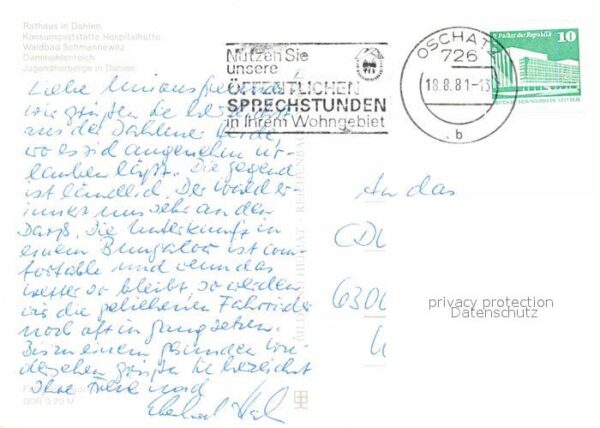 Rathaus in Dahlen
Konsumgaststätte Hospitalhütte
Waldbad Schmannewitz
Dammühlenteich
Jugendherberge in Dahlen
Nutzen Sie
unsere
ÖFFENTLICHEN
SPRECHSTUNDEN
in Ihrem Wohngebiet
OSCHATZ
726
18.8.81-13
b
Palast der Republik 10
DEUTSCHE DEMOKRATISCHE REPUBLIK
Liebe Unionsfreunde!
wir grüßen Sie
aus der Dahlener Heide
wo es sich angenehm ur-
lauben läßt. Die Gegend
ist ländlich. Der Wald er-
innert uns sehr an den
Darß. Die Unterkunft in
einem Bungalow ist com-
fortable und wenn das
Wetter so bleibt so werden
wir die geliehenen Fahrräder
noch oft in Gang setzen.
Bis zu einem gesunden Wie-
dersehen grüßen Sie
Ihre und
Eberhard
An das
CDU
6300
privacy protection
Datenschutz
BILD UND HEIMAT REICHENBACH
DDR 0,20 M